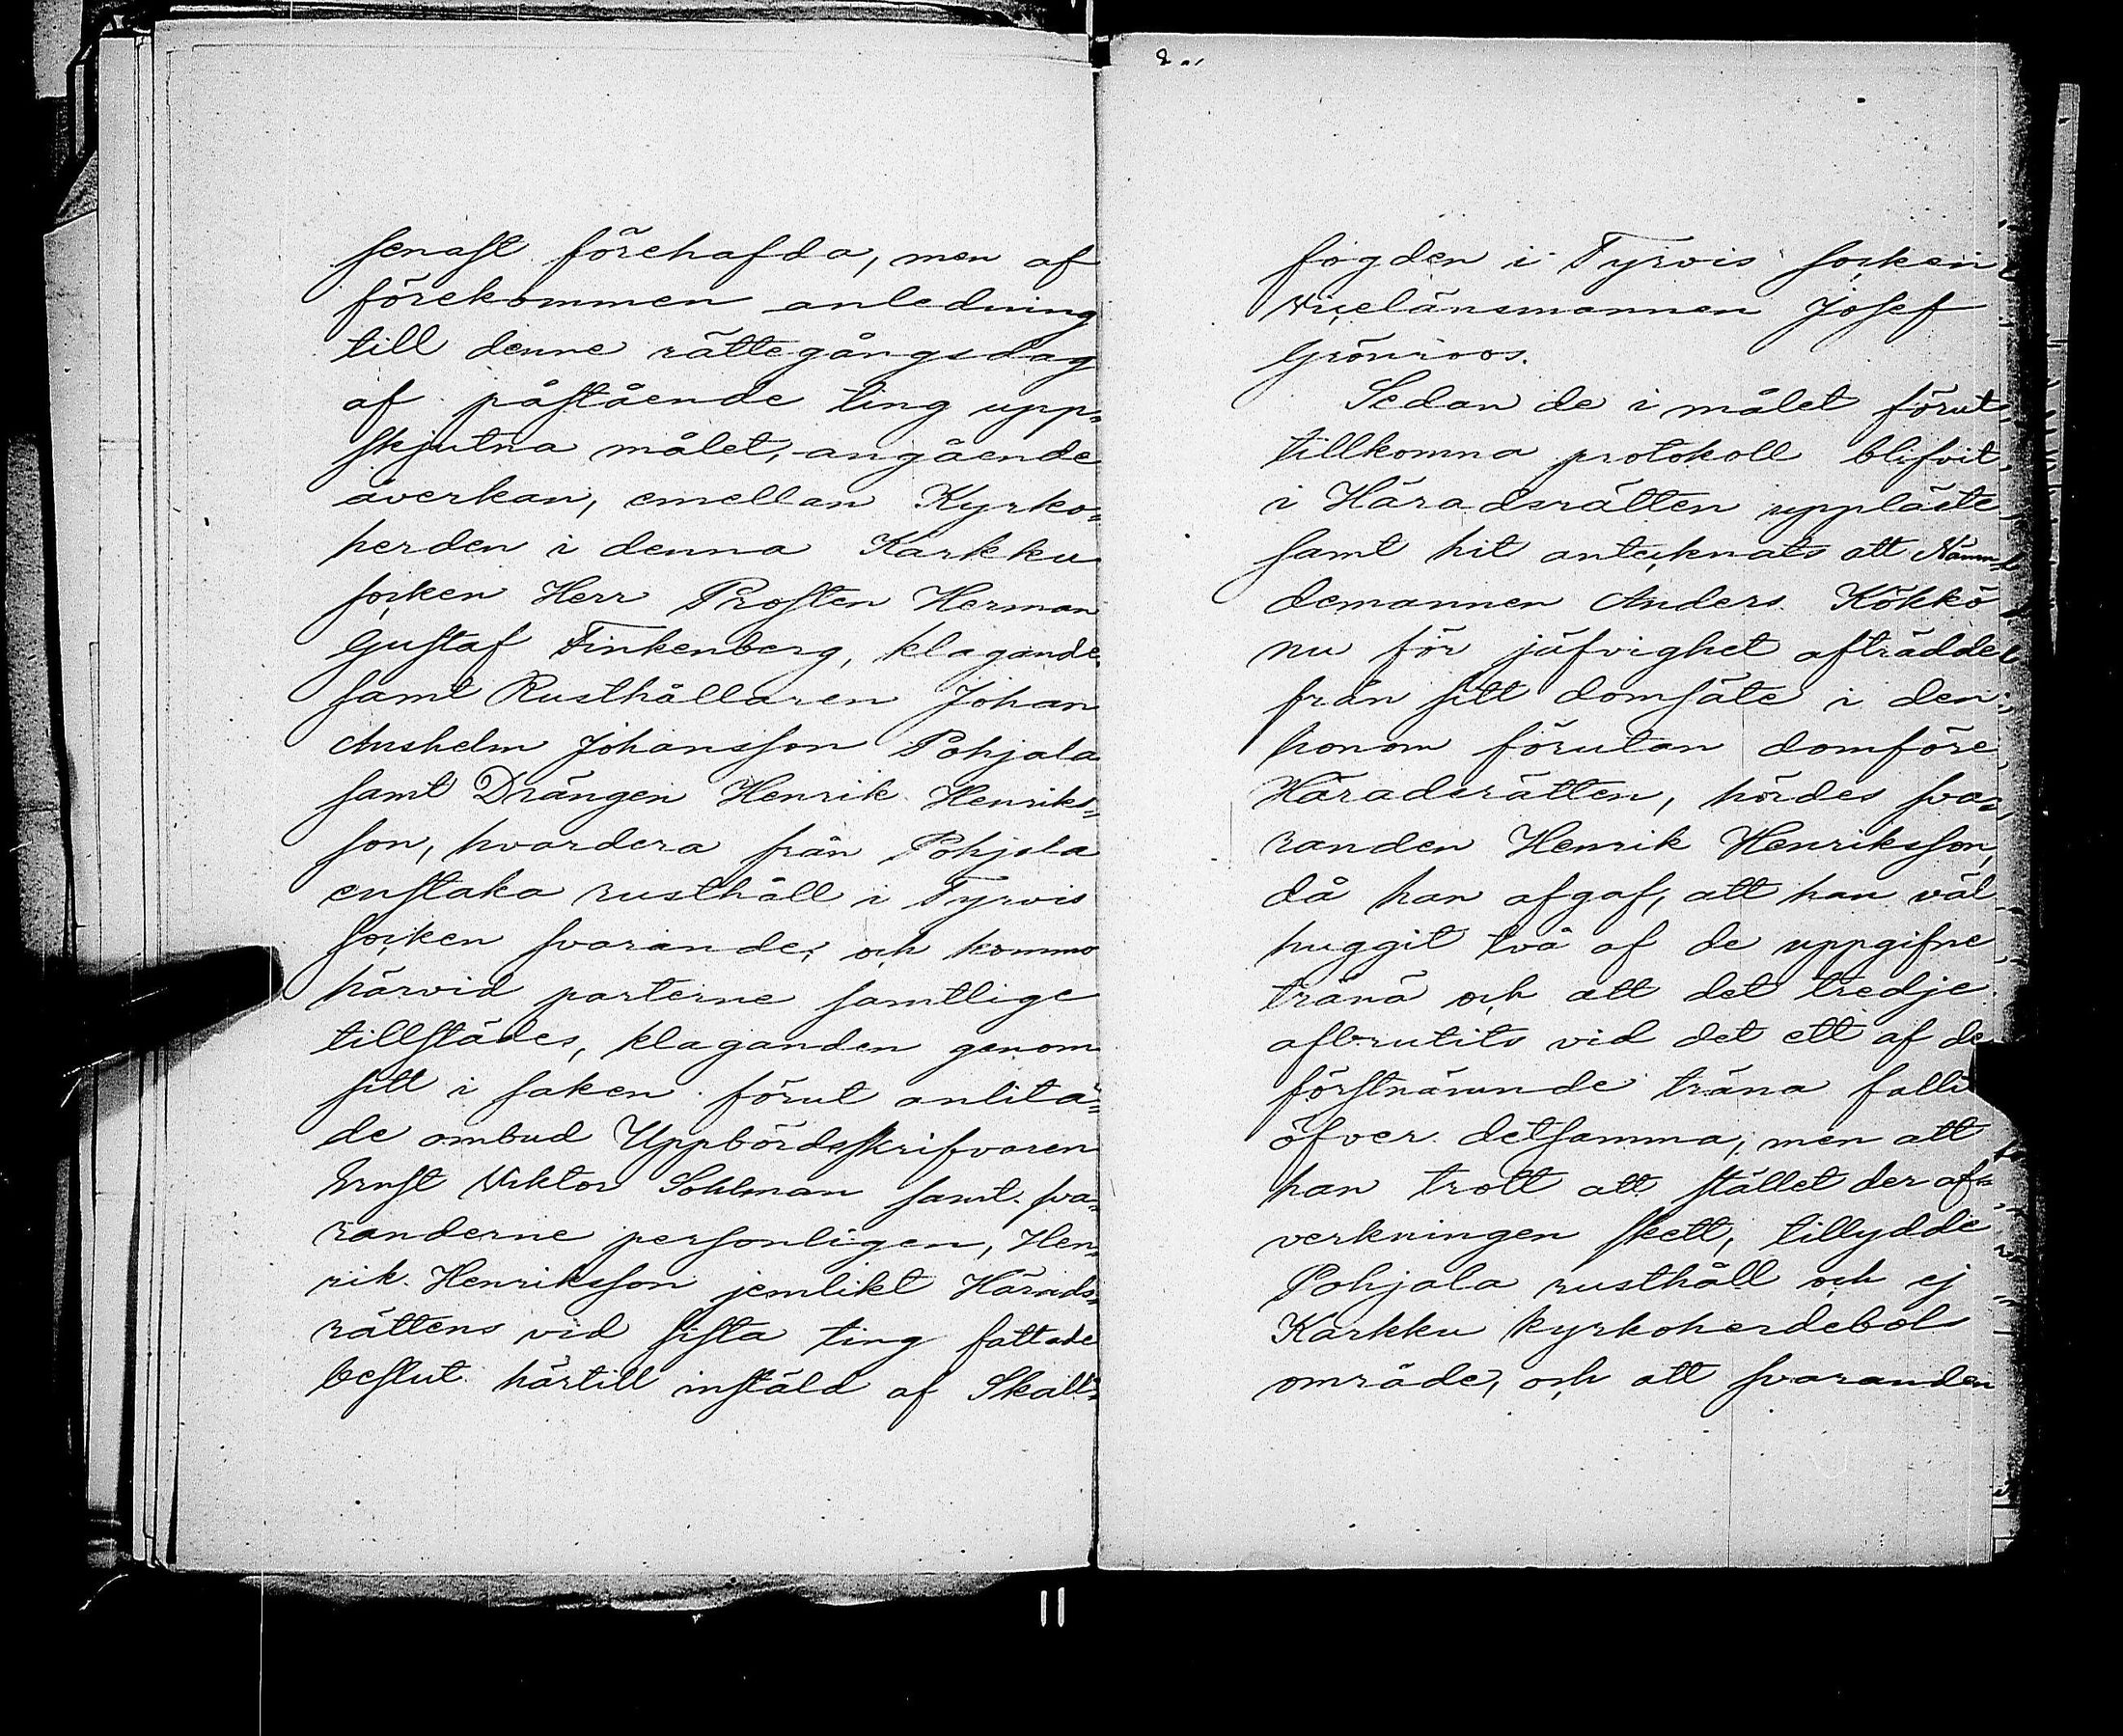 senast förehafda, men af
förekommen anledning
till denne rättegångsdag
af påstående ting upp=
skjutna målet, angående
åverkan, emellan Kyrko=
herden i denna Karkku
socken Herr Prosten Herman
Gustaf Finkenberg, klagande
samt Rusthållaren Johan
Anshelm Johansson Pohjala
samt Drängen Henrik Henriks=
son, hvardera från Pohjala
enstaka rusthåll i Tyrvis
socken svarande; och kommo
härvid parterne samtlige
tillstädes, klaganden genom
sitt i saken förut anlita=
de ombud Uppbördsskrifvaren
Ernst Viktor Sohlman samt sva=
randerne personligen, Hen=
rik Henriksson jemlikt Härads=
rättens vid sista ting fattade
beslut härtill instäld af Skall=
8.
fogden i Tyrvis socken
Vicelänsmannen Josef
Grönroos.
Sedan de i målet förut
tillkomna protokoll blifvit
i Häradsrätten uppläste
samt hit antecknats att Nämn=
demannen Anders Kökkö
nu för jäfvighet afträdde
från sitt domsäte i den
honom förutan domföre
Häradsrätten, hördes sva=
randen Henrik Henriksson,
då han afgaf, att han väl
huggit två af de uppgifne
träna och att det tredje
afbrutits vid det ett af de
förstnämnde träna falli
öfver detsamma, men att
han trott att stället der af=
verkningen skett, tillydde
Pohjala rusthåll och ej
Karkku kyrkoherdebols
område, och att svaranden
11